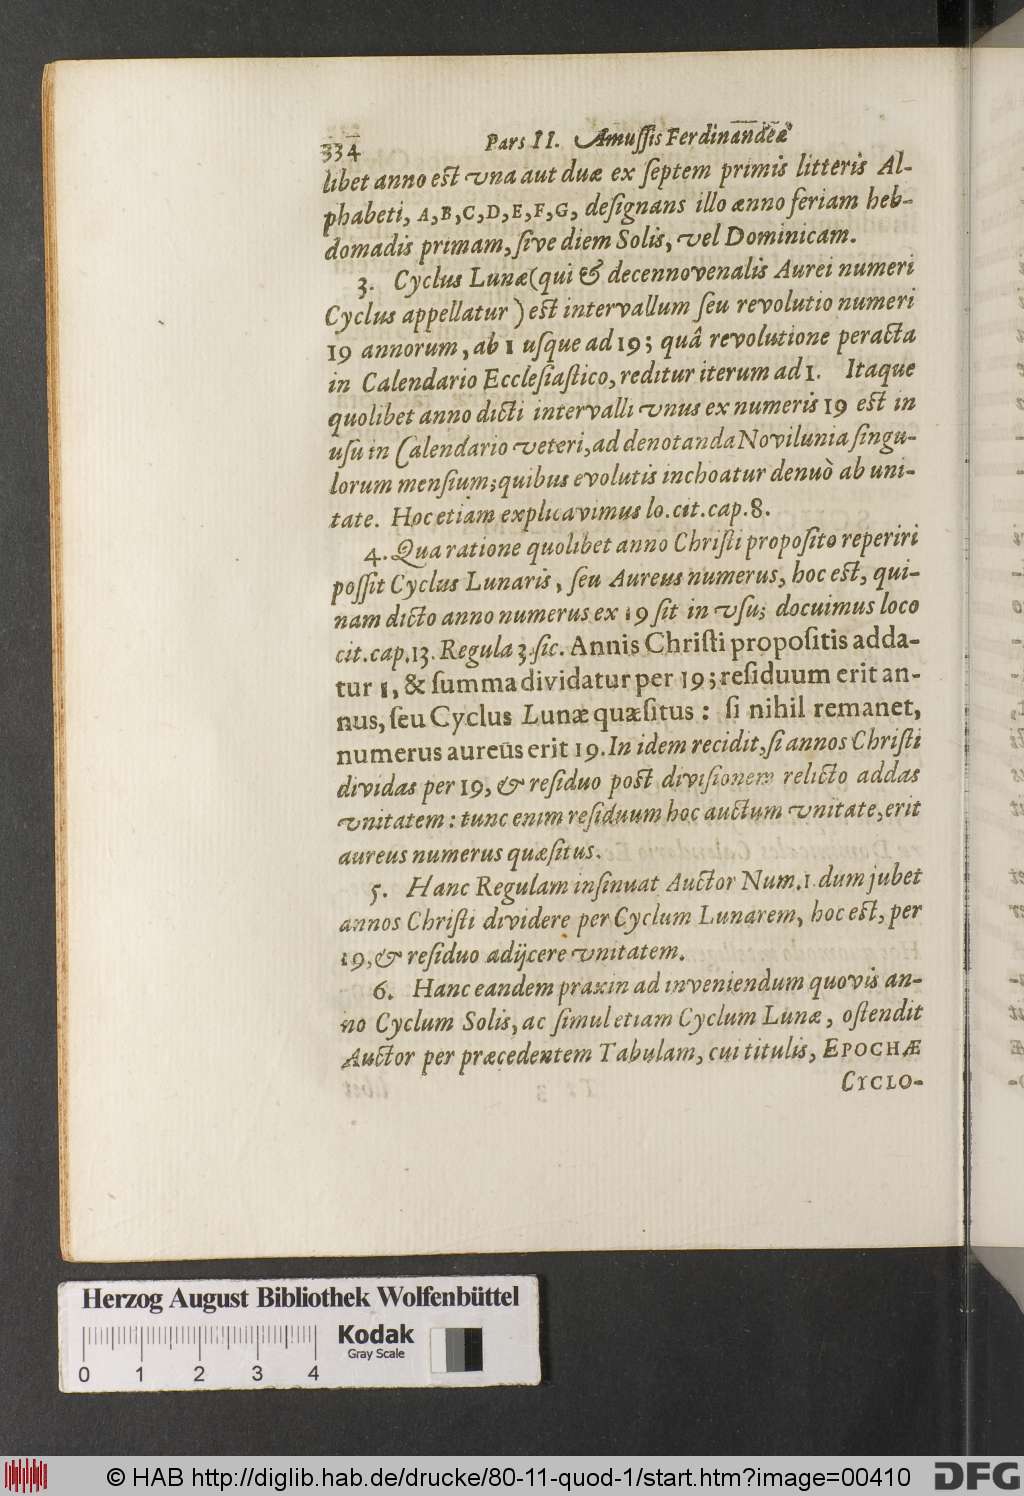 334 Pars II. Amuſſis Ferdinandeæ
libet anno est vna aut duæ ex ſeptem primis litteris Al-
phabeti, A, B, C, D, E, F, G, deſignans illo anno feriam heb-
domadis primam, ſive diem Solis, vel Dominicam.
3. Cyclus Lunæ (qui & decennovenalis Aurei numeri
Cyclus appellatur) est intervallum ſeu revolutio numeri
19 annorum, ab 1 uſque ad 19; quâ revolutione peracta
in Calendario Eccleſiaſtico, reditur iterum ad 1. Itaque
quolibet anno dicti intervalli vnus ex numeris 19 est in
uſu in Calendario veteri, ad denotanda Novilunia ſingu-
lorum menſium; quibus evolutis inchoatur denuò ab uni-
tate. Hoc etiam explicavimus lo. cit. cap. 8.
4. Qua ratione quolibet anno Chriſti propoſito reperiri
poſſit Cyclus Lunaris, ſeu Aureus numerus, hoc est, qui-
nam dicto anno numerus ex 19 ſit in vſu; docuimus loco
cit. cap. 13. Regula 3. ſic. Annis Chriſti propoſitis adda-
tur 1, & ſumma dividatur per 19; reſiduum erit an-
nus, ſeu Cyclus Lunæ quæſitus: ſi nihil remanet,
numerus aureus erit 19. In idem recidit, ſi annos Chriſti
dividas per 19, & reſiduo post diviſionem relicto addas
vnitatem: tunc enim reſiduum hoc auctum vnitate, erit
aureus numerus quæſitus.
5. Hanc Regulam inſinuat Auctor Num. 1. dum jubet
annos Chriſti dividere per Cyclum Lunarem, hoc est, per
19, & reſiduo adijcere vnitatem.
6. Hanc eandem praxin ad inveniendum quovis an-
no Cyclum Solis, ac ſimul etiam Cyclum Lunæ, oſtendit
Auctor per præcedentem Tabulam, cui titulis, EPOCHÆ
CYCLO-
Herzog August Bibliothek Wolfenbüttel
Kodak
Gray Scale
0 1 2 3 4
© HAB http://diglib.hab.de/drucke/80-11-quod-1/start.htm?image=00410
DFG